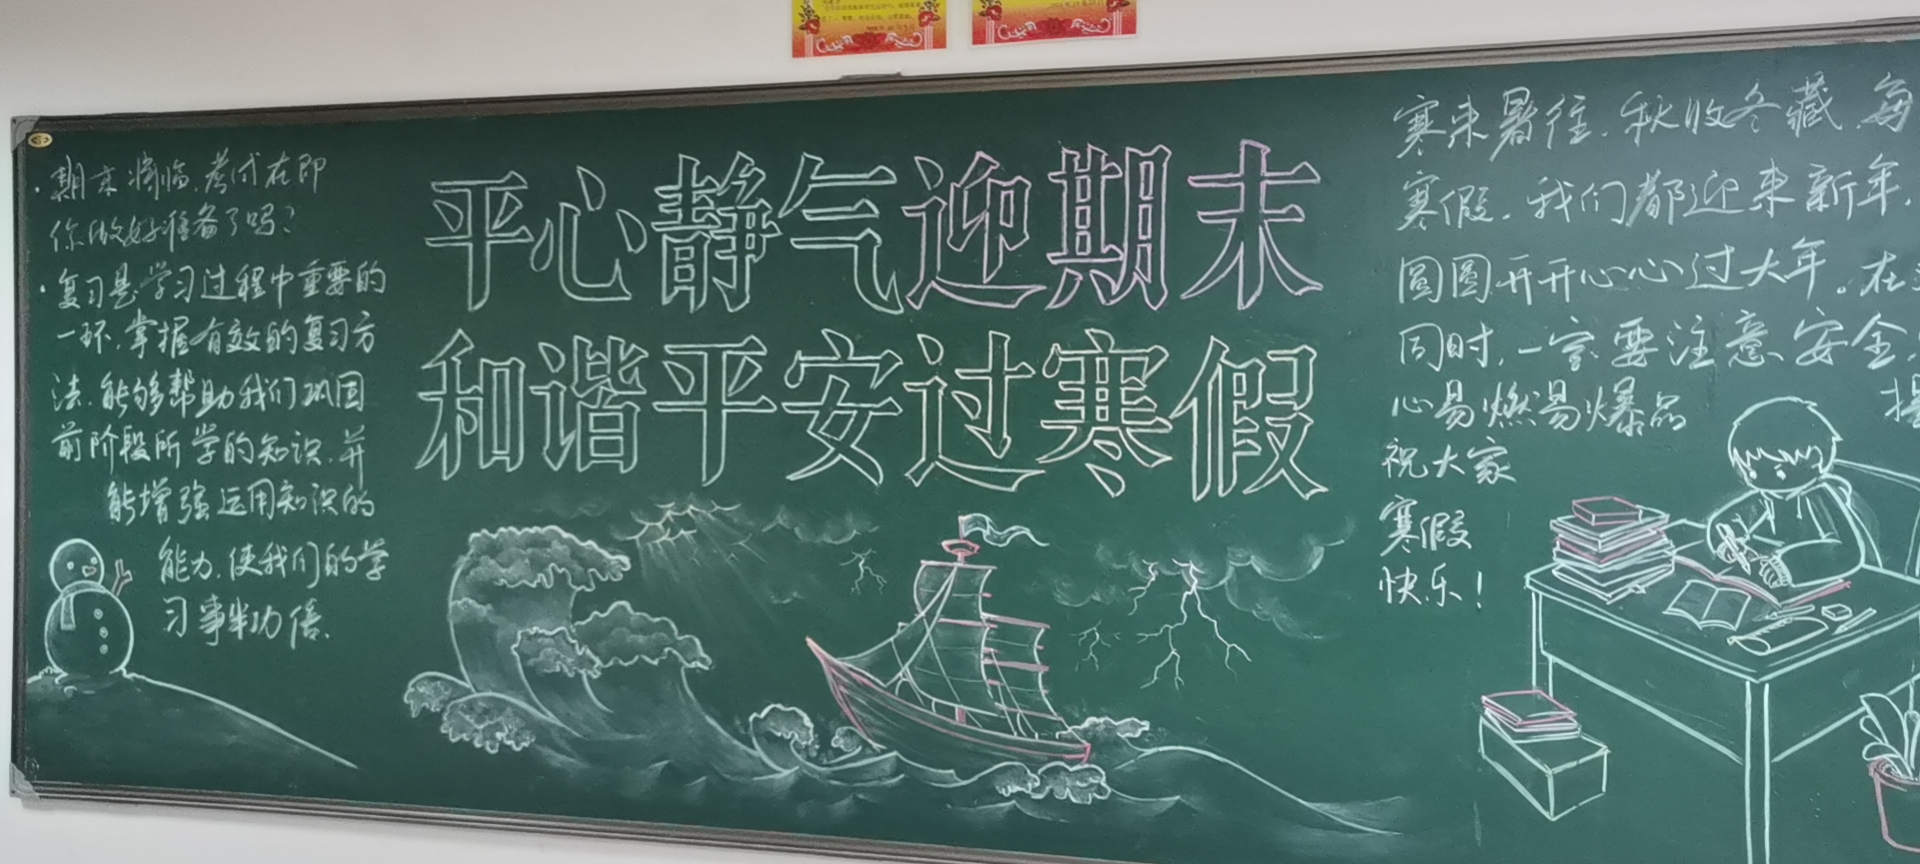 期末将临,考试在即
你做好准备了吗?
复习是学习过程中重要的
一环,掌握有效的复习方
法,能够帮助我们巩固
前阶段所学的知识,并
能增强运用知识的
能力,使我们的学
习事半功倍.
平心静气迎期末
和谐平安过寒假
寒来暑往,秋收冬藏,每
寒假,我们都迎来新年,
圆圆开开心心过大年。在
同时,一定要注意安全,
心易燃易爆品
祝大家
寒假
快乐!